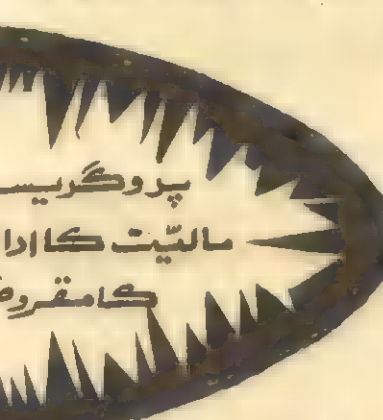 پروگریس
مالیّت کا ادا
کا مقروض